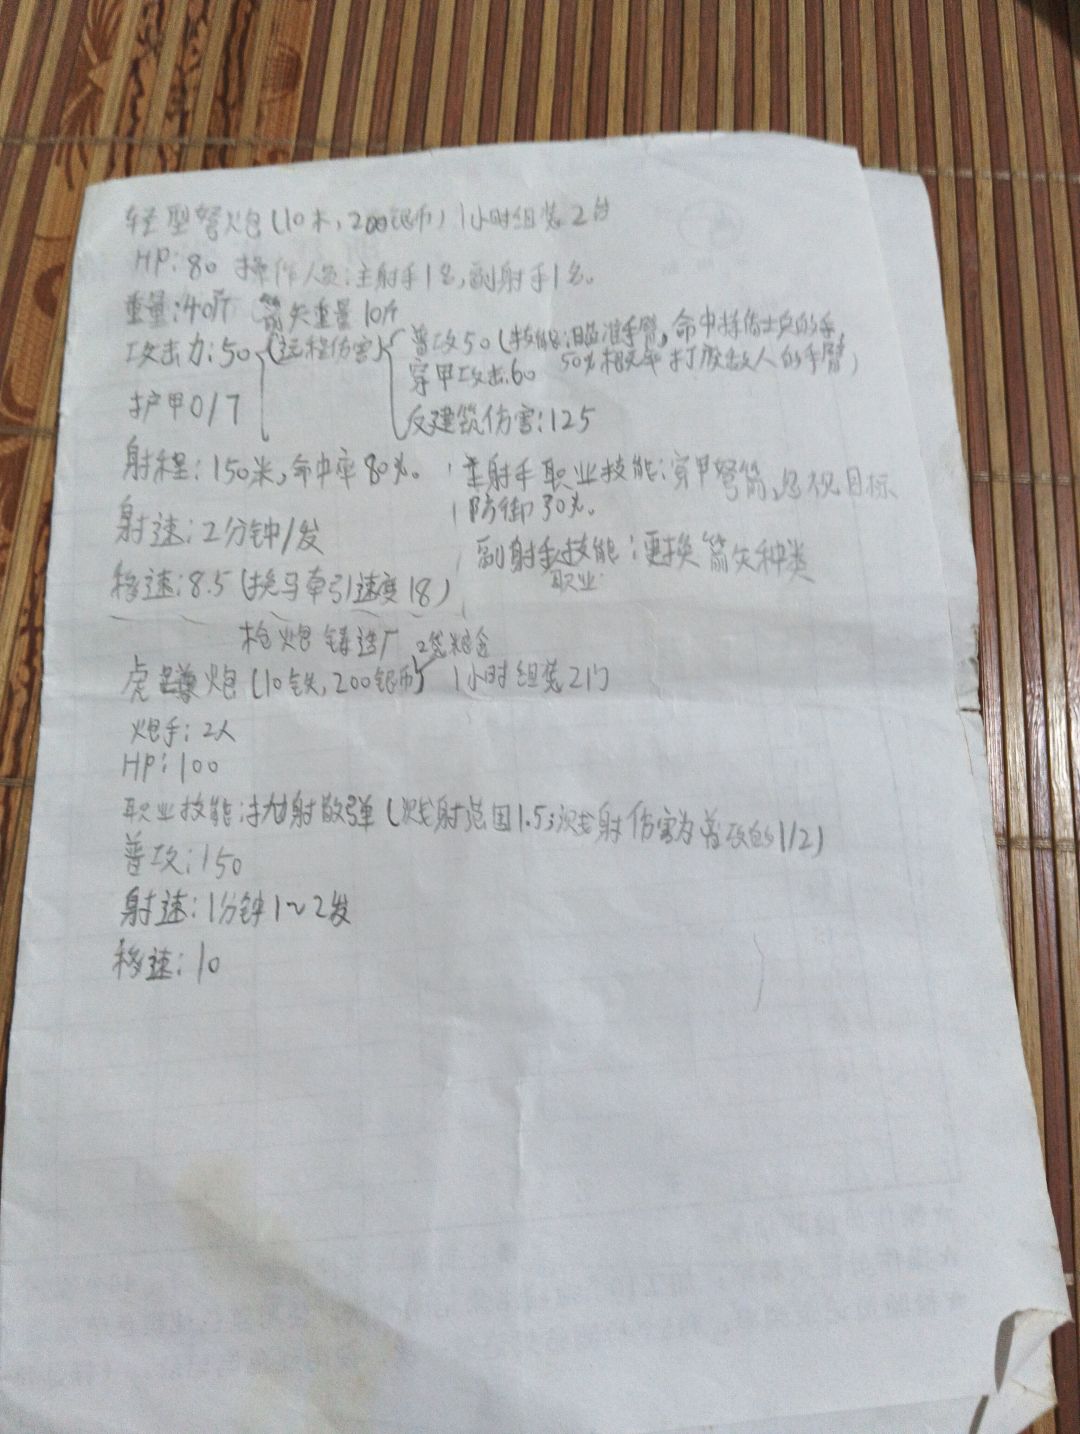 轻型弩炮(10木,200银币) 1小时组装2台
HP:80 操作人员:主射手1名,副射手1名。
重量:40斤 箭矢重量10斤
攻击力:50 (远程伤害) 普攻50(技能:瞄准手臂,命中掉落士兵的手,
50%概率打放敌人的手臂)
穿甲攻击:60
护甲0/7
反建筑伤害:125
射程:150米,命中率80%。
主射手职业技能:穿甲弩箭,忽视目标
防御30%。
射速:2分钟/发
副射手技能:更换箭矢种类
职业
移速:8.5(换马牵引速度18)
枪炮铸造厂 2袋粮食
虎蹲炮(10铁,200银币) 1小时组装2门
炮手:2人
HP:100
职业技能:抛射散弹(溅射范围1.5;溅射伤害为普攻的1/2)
普攻:150
射速:1分钟1~2发
移速:10